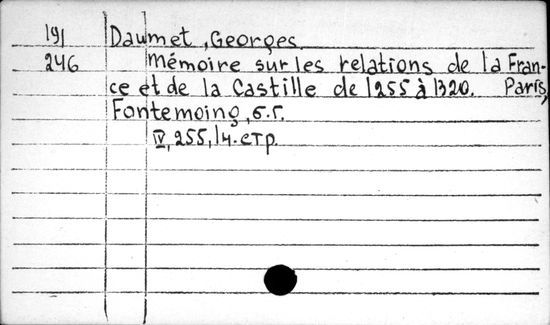 191 Daumet, Georges.
246 Mémoire sur les relations de la Fran-
ce et de la Castille de 1255 à 1320. Paris,
Fontemoing, б.г.
IV, 255, 14. стр.